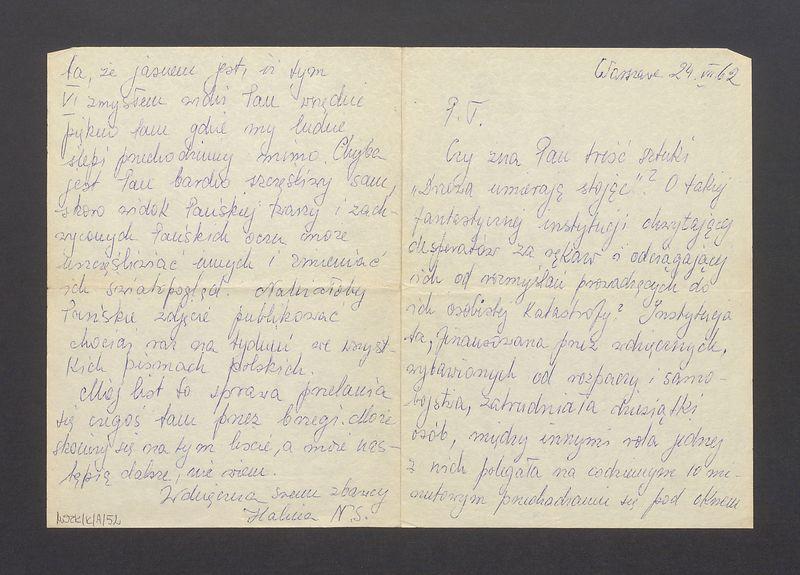 Warszawa 24.VII.62
P.T.
Czy zna Pan treść sztuki
„Drzewa umierają stojąc"? O takiej
fantastycznej instytucji chwytającej
desperatów za rękaw i odciągającej
ich od rozmyślań prowadzących do
ich osobistej katastrofy? Instytucja
ta, finansowana przez wdzięcznych,
wybawionych od rozpaczy i samo-
bójstwa, zatrudniała dziesiątki
osób, między innymi rola jednej
z nich polegała na codziennym 10 mi-
nutowym przechadzaniu się pod oknem
ta, że jasnem jest, iż tym
VI zmysłem widzi Pan wszędzie
piękno tam gdzie my ludzie
ślepi przechodzimy mimo. Chyba
jest Pan bardzo szczęśliwy sam,
skoro widok Pańskiej twarzy i zach-
wyconych Pańskich oczu może
uszczęśliwiać innych i zmieniać
ich światopogląd. Należałoby
Pańskie zdjęcie publikować
chociaż raz na tydzień we wszyst-
kich pismach polskich.
Mój list to sprawa przelania
się czegoś tam przez brzegi. Może
skończy się na tym liście, a może nas-
tąpią dalsze, nie wiem.
Wdzięczna swem zbawcy
Halina N.S.